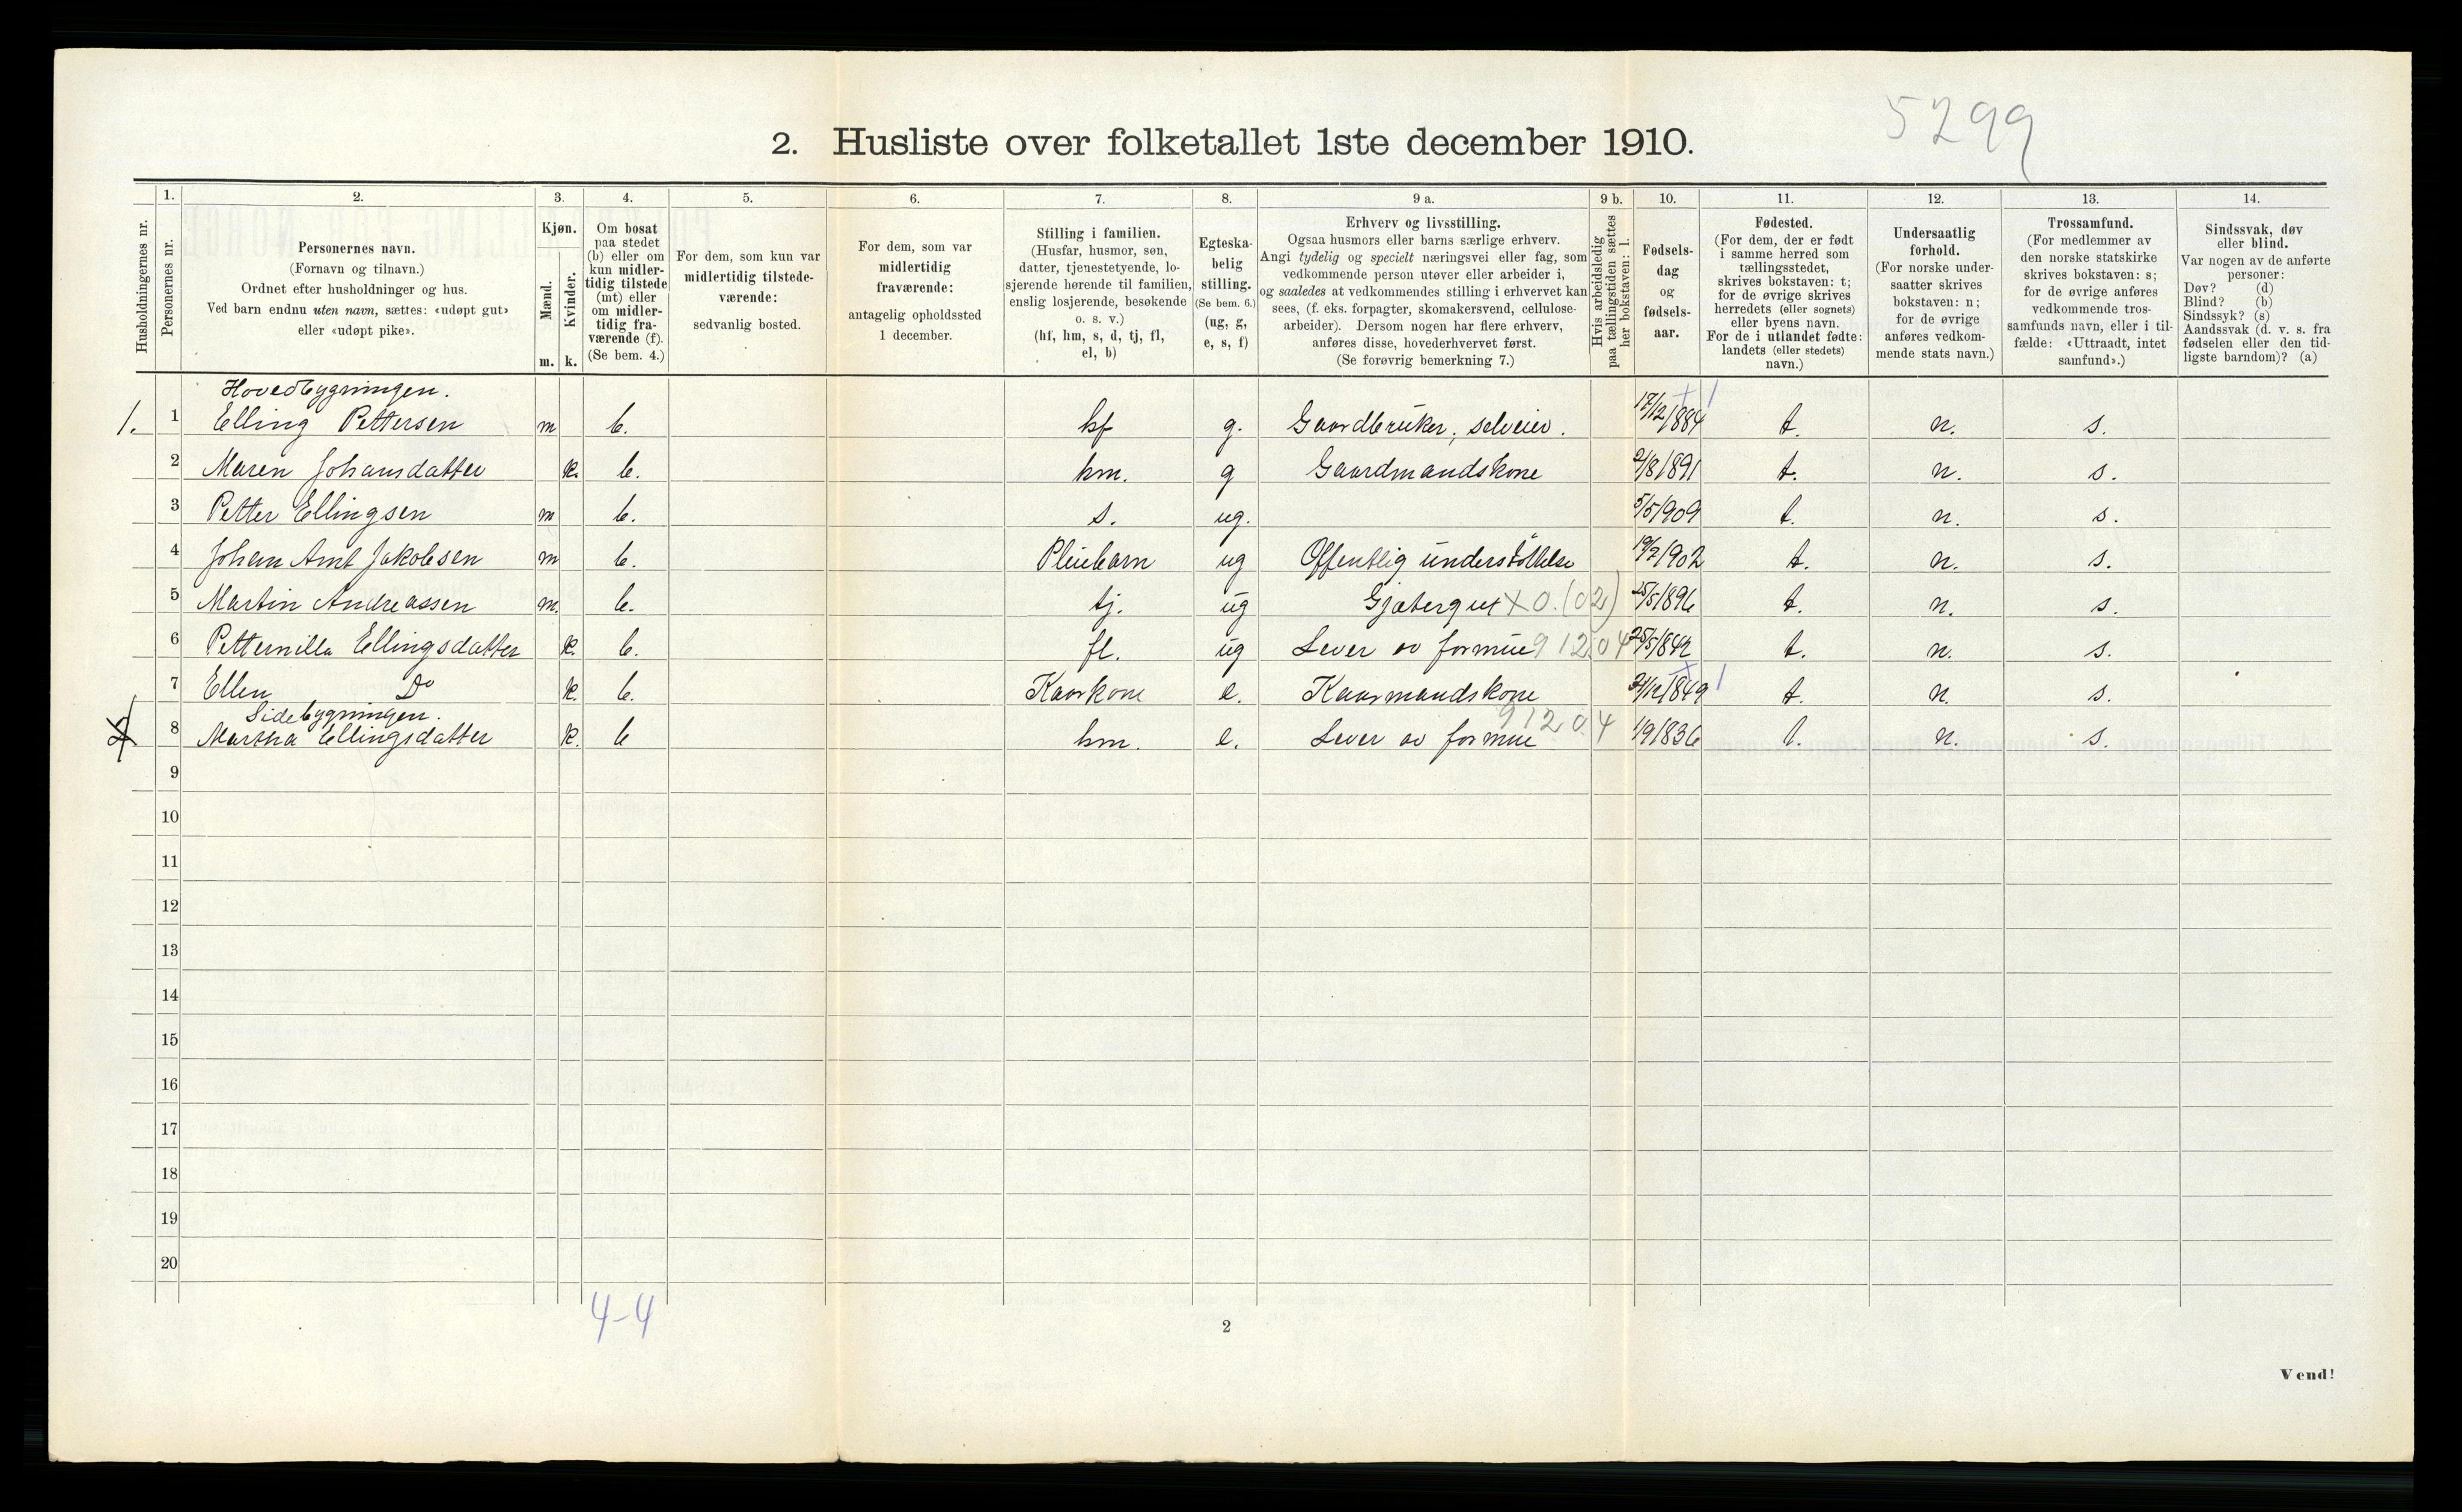 5299
2. Husliste over folketallet 1ste december 1910.
Husholdningernes nr.
1.
Personernes nr.
2.
Personernes navn.
(Fornavn og tilnavn.)
Ordnet efter husholdninger og hus.
Ved barn endnu uten navn, sættes: «udøpt gut»
eller «udøpt pike».
3.
Kjøn.
Mænd.
Kvinder.
m. k.
4.
Om bosat
paa stedet
(b) eller om
kun midler-
tidig tilstede
(mt) eller
om midler-
tidig fra-
værende (f).
(Se bem. 4.)
5.
For dem, som kun var
midlertidig tilstede-
værende:
sedvanlig bosted.
6.
For dem, som var
midlertidig
fraværende:
antagelig opholdssted
1 december.
7.
Stilling i familien.
(Husfar, husmor, søn,
datter, tjenestetyende, lo-
sjerende hørende til familien,
enslig losjerende, besøkende
o. s. v.)
(hf, hm, s, d, tj, fl,
el, b)
8.
Egteska-
belig
stilling.
(Se bem. 6.)
(ug, g,
e, s, f)
9 a.
Erhverv og livsstilling.
Ogsaa husmors eller barns særlige erhverv.
Angi tydelig og specielt næringsvei eller fag, som
vedkommende person utøver eller arbeider i,
og saaledes at vedkommendes stilling i erhvervet kan
sees, (f. eks. forpagter, skomakersvend, cellulose-
arbeider). Dersom nogen har flere erhverv,
anføres disse, hovederhvervet først.
(Se forøvrig bemerkning 7.)
9 b.
Hvis arbeidsledig
paa tællingstiden sættes
her bokstaven: l.
10.
Fødsels-
dag
og
fødsels-
aar.
11.
Fødested.
(For dem, der er født
i samme herred som
tællingsstedet,
skrives bokstaven: t;
for de øvrige skrives
herredets (eller sognets)
eller byens navn.
For de i utlandet fødte:
landets (eller stedets)
navn.)
12.
Undersaatlig
forhold.
(For norske under-
saatter skrives
bokstaven: n;
for de øvrige
anføres vedkom-
mende stats navn.)
13.
Trossamfund.
(For medlemmer av
den norske statskirke
skrives bokstaven: s;
for de øvrige anføres
vedkommende tros-
samfunds navn, eller i til-
fælde: «Uttraadt, intet
samfund».)
14.
Sindssvak, døv
eller blind.
Var nogen av de anførte
personer:
Døv? (d)
Blind? (b)
Sindssyk? (s)
Aandssvak (d. v. s. fra
fødselen eller den tid-
ligste barndom)? (a)
Hovedbygningen.
1. 1 Elling Pettersen m b. hf g. Gaardbruker, selveier. 17/12/884 t. n. s.
2 Maren Johansdatter k. b. hm. g Gaardmandskone 2/8 1891 t. n. s.
3 Petter Ellingsen m b. s. ug. 5/5/909 t. n. s.
4 Johan Arnt Jakobsen m b. Pleiebarn ug Offentlig understøttelse 19/7/902 t. n. s.
5 Martin Andreassen m. b. tj. ug Gjætergut X 0. (02) 25/5/896 t. n. s.
6 Petternilla Ellingsdatter k. b. fl. ug Lever av formue 91204 25/5/842 t. n. s.
7 Ellen Do k. b. Kaarkone e. Kaarmandskone /12/1849 t. n. s.
Sidebygningen.
2 8 Martha Ellingsdatter k. b hm. e. Lever av formue 91204 1/9/836 t. n. s.
9
10
11
12
13
14
15
16
17
18
19
20
4-4
2
Vend!